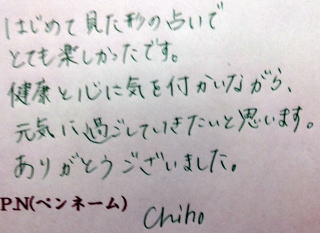 はじめて見た形の占いで
とても楽しかったです。
健康と心に気を付かいながら、
元気に過ごしていきたいと思います。
ありがとうございました。
P.N(ペンネーム) Chiho